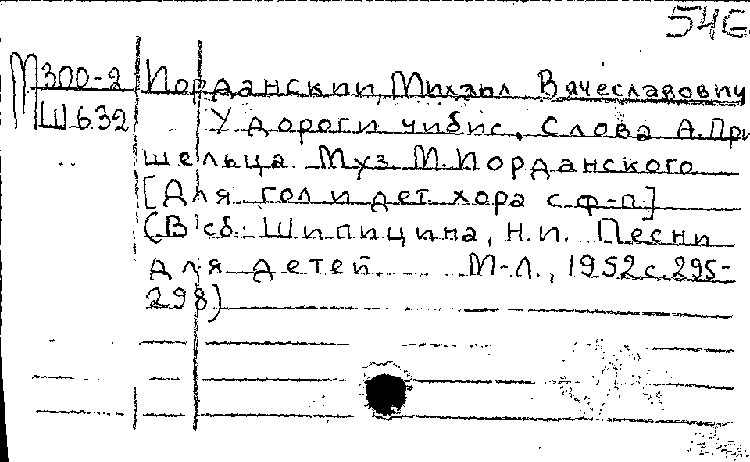 546
М300-2 Иорданский, Михаил Вячеславович
Ш632 У дороги чибис. Слова А. При
шельца. Муз. М. Иорданского
[Для гол и дет. хора с ф-п]
(В сб: Шипицина, Н.п. Песни
для детей. М-Л., 1952 с. 295-
298)